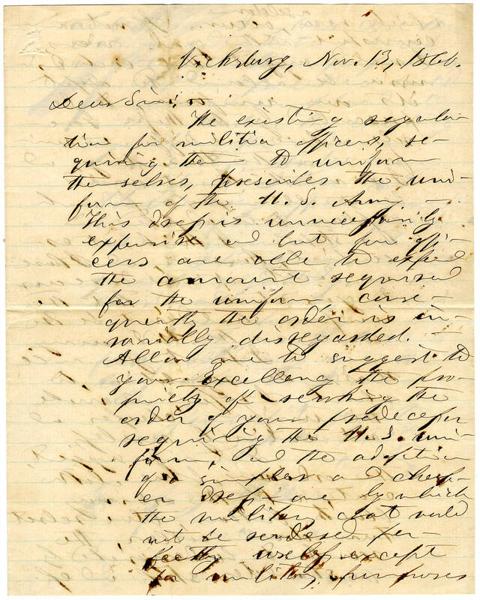 Vicksburg, Nov. 13, 1860.
Dear Sir:
The existing regula-
tion for militia officers, re-
quiring them to uniform
themselves, prescribes the uni-
form of the U. S. Army
This dress is unnecessarily
expensive and but few offi-
cers are able to expend
the amount required
for the uniform conse-
quently the order is in-
variably disregarded.
Allow me to suggest to
your Excellency the pro-
priety of revoking the
order of your predecessor
requiring the U. S. uni-
form, and the adoption
of a simpler and cheap-
er dress one by which
the military coat would
not be rendered per-
fectly useless except
for military purposes